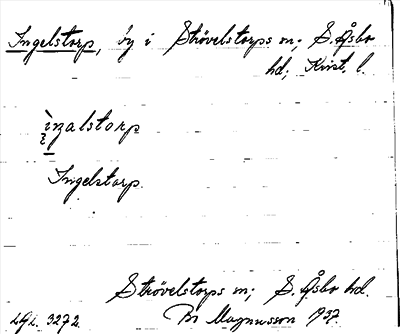 Ingelstorp, by i Strövelstorps sn; S. Åsbo
hd; Krist. l.
ìŋalstorp
Ingelstorp.
Strövelstorps sn; S. Åsbo hd.
LGL. 3272. Br Magnusson 1937.